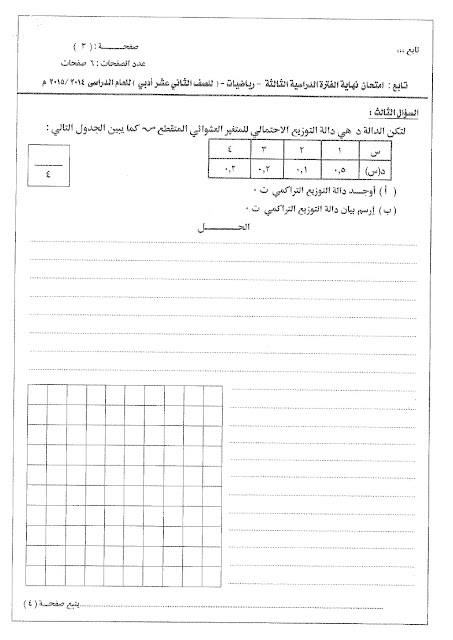 تابع ،،،
صفحـــــة : ( ٣ )
عدد الصفحات : ٦ صفحات
تابع : امتحان نهاية الفترة الدراسية الثالثة - رياضيات - ( للصف الثاني عشر أدبي ) للعام الدراسى ٢٠١٤ / ٢٠١٥ م
السؤال الثالث :
لتكن الدالة د هي دالة التوزيع الاحتمالي للمتغير العشوائي المتقطع سہ كما يبين الجدول التالي :
س ١ ٢ ٣ ٤
د(س) ٠,٥ ٠,١ ٠,٢ ٠,٢
٤
( أ ) أوجـد دالة التوزيع التراكمي ت ٠
( ب ) إرسم بيان دالة التوزيع التراكمي ت ٠
الحــــــل
يتبع صفحـة ( ٤ )